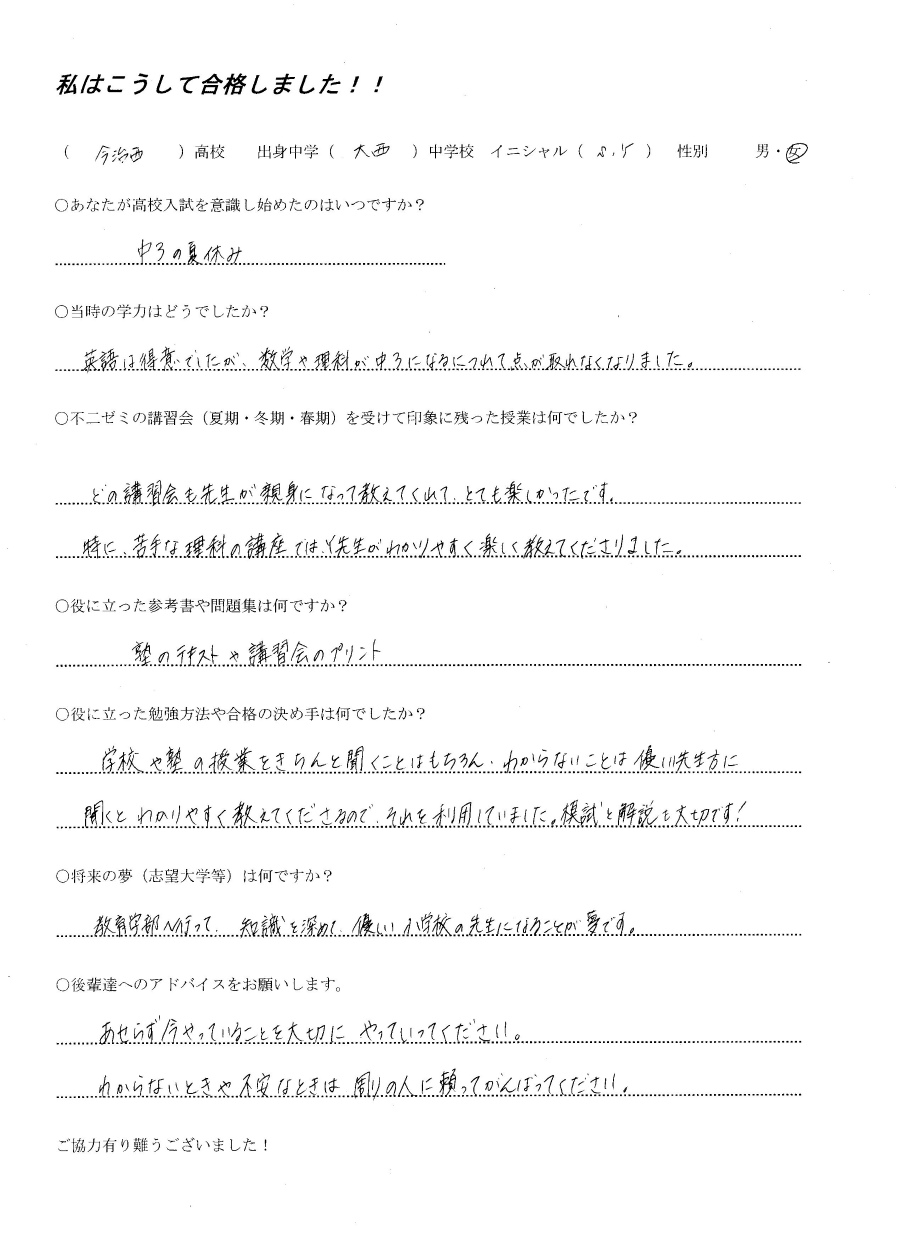 私はこうして合格しました！！
（ 今治西 ）高校 出身中学（ 大西 ）中学校 イニシャル（ S.Y ） 性別 男・女
○あなたが高校入試を意識し始めたのはいつですか？
中3の夏休み
○当時の学力はどうでしたか？
英語は得意でしたが、数学や理科が中3になるにつれて点が取れなくなりました。
○不二ゼミの講習会（夏期・冬期・春期）を受けて印象に残った授業は何でしたか？
どの講習会も先生が親身になって教えてくれて、とても楽しかったです。
特に、苦手な理科の講座では、Y先生がわかりやすく楽しく教えてくださりました。
○役に立った参考書や問題集は何ですか？
塾のテキストや講習会のプリント
○役に立った勉強方法や合格の決め手は何でしたか？
学校や塾の授業をきちんと聞くことはもちろん、わからないことは優しい先生方に
聞くとわかりやすく教えてくださるので、それを利用していました。模試と解説も大切です！
○将来の夢（志望大学等）は何ですか？
教育学部へ行って、知識を深めて、優しい小学校の先生になることが夢です。
○後輩達へのアドバイスをお願いします。
あせらず今やっていることを大切にやっていってください。
わからないときや不安なときは周りの人に頼ってがんばってください。
ご協力有り難うございました！